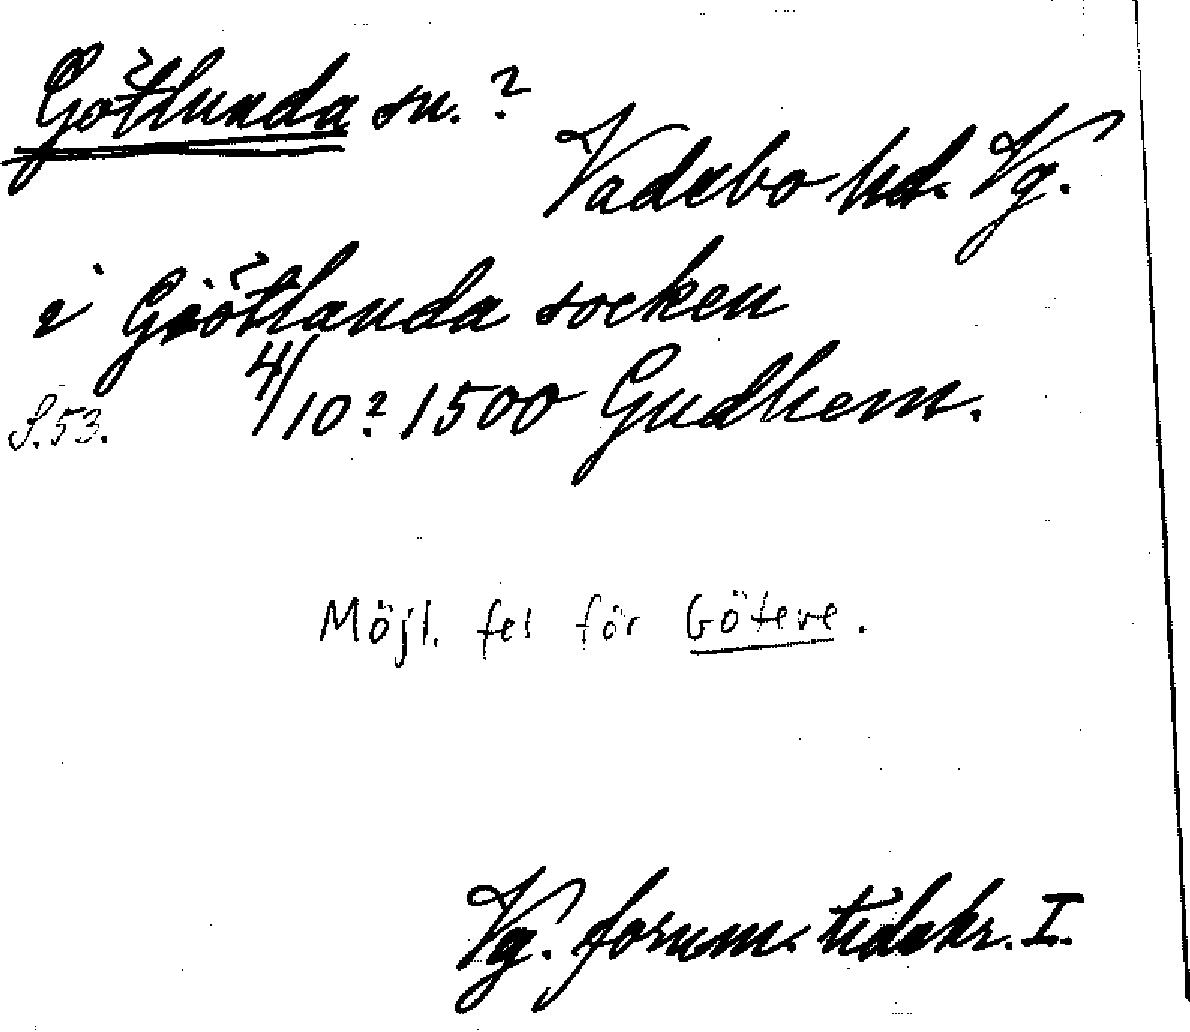 Götlunda sn.?
Vadsbo hd. Vg.
i Giötlanda socken
S.53. 4/10? 1500 Gudhem.
Möjl. fel för Göteve.
Vg. fornm. tidskr. I.